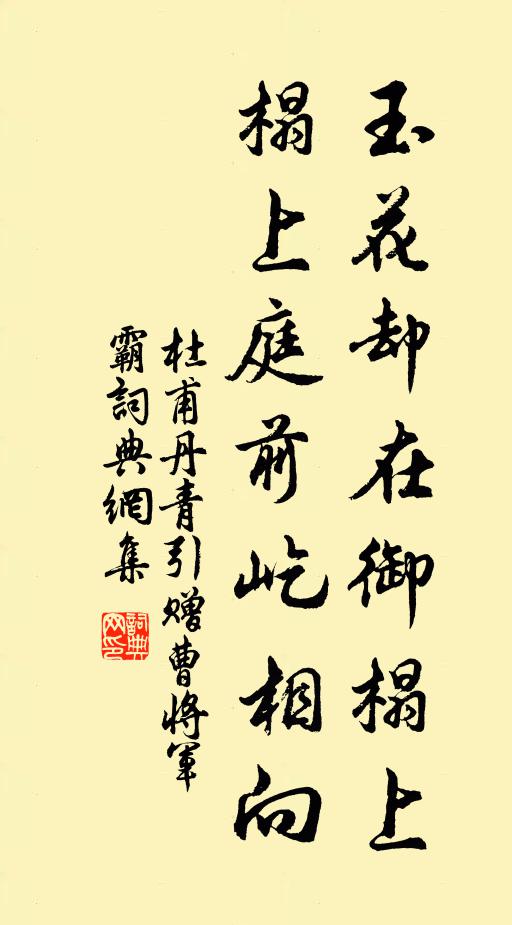 玉花却在御榻上
榻上庭前屹相向
杜甫丹青引赠曹将军
霸詞典網集
詞典网印